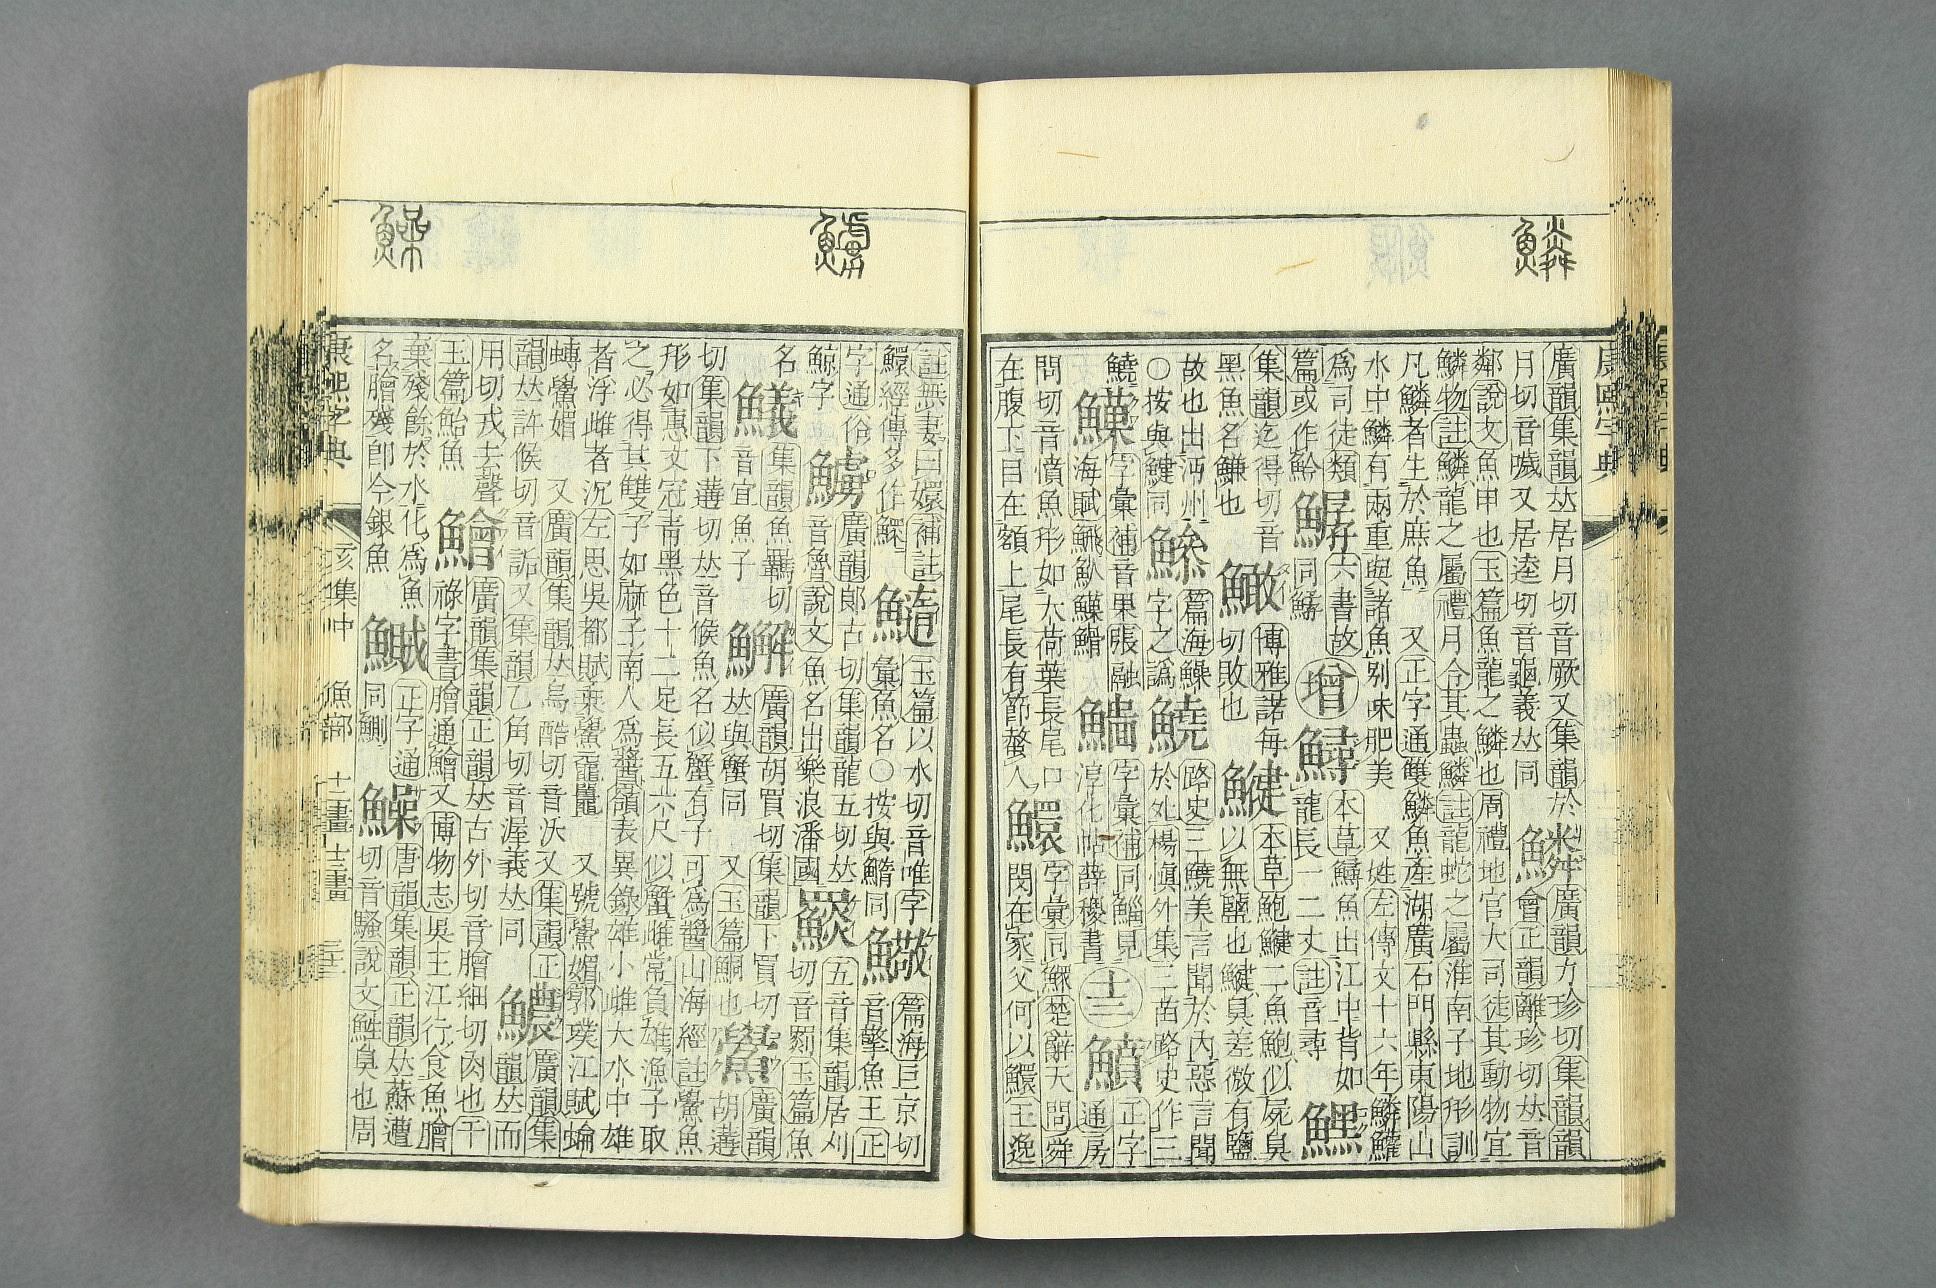 鱗
康熙字典
廣韻集韻𠀤居月切音厥又集韻於
月切音噦又居逵切音龜義𠀤同
鱗
廣韻力珍切集韻韻
會正韻離珍切𠀤音
鄰說文魚甲也玉篇魚龍之鱗也周禮地官大司徒其動物宜
鱗物註鱗龍之屬禮月令其蟲鱗註龍蛇之屬淮南子地形訓
凡鱗者生於庶魚 又正字通雙鱗魚產湖廣石門縣東陽山
水中鱗有兩重與諸魚别味肥美 又姓左傳文十六年鱗鱹
爲司徒類
篇或作魿
六書故
同鰝
增
鱘
本草鱘魚出江中背如
龍長一二丈註音尋
集韻迄得切音
黑魚名鰜也
鱤
博雅諾每
切敗也
鰎
本草鮑鰎二魚鮑似屍臭
以無鹽也鰎臭差微有鹽
故也出沔州
○按與鍵同
篇海鱢
字之譌
鱙
路史三鱙美言聞於內惡言聞
於外楊愼外集三苗路史作三
鱙
字彙補音果張融
海賦
字彙補同鯔見
淳化帖薛稷書
十三
鱝
正字
通房
問切音憤魚形如大荷葉長尾口
在腹下目在額上尾長有節螫人
鱞
字彙同鰥楚辭天問舜
閔在家父何以鱞王逸
鱸
鱢
註無妻曰鱞補註
鱞經傳多作鰥
玉篇以水切音唯字
彙魚名○按與鱃同
篇海巨京切
音擎魚王正
字通俗
鯨字
鱸
廣韻郞古切集韻龍五切𠀤
音魯說文魚名出樂浪潘國
五音集韻居刈
切音罽玉篇魚
名
鱶
集韻魚羈切
音宜魚子
廣韻胡買切集韻下買切
𠀤與蟹同 又玉篇鮦也
鱟
廣韻
胡遘
切集韻下遘切𠀤音候魚名似蟹有子可爲醬山海經註鱟魚
形如惠文冠靑黑色十二足長五六尺似蟹雌常負雄漁子取
之必得其雙子如麻子南人爲醬嶺表異錄雄小雌大水中雄
者浮雌者沉左思吳都賦乘鱟黿鼉 又號鱟媚郭璞江賦蜦
𧑅鱟媢 又廣韻集韻𠀤烏酷切音沃又集韻正
韻𠀤許候切音詬又集韻乙角切音渥義𠀤同
鱧
廣韻集
韻𠀤而
用切戎去聲
玉篇鮐魚
鱠
廣韻集韻正韻𠀤古外切音膾細切肉也干
祿字書膾通鱠又博物志吳王江行食魚膾
棄殘餘於水化爲魚
名膾殘卽今銀魚
正字通
同鰂
鱢
唐韻集韻正韻𠀤蘇遭
切音騷說文鮏臭也周
康熙字典
亥集中 魚部 十二畫 十三畫